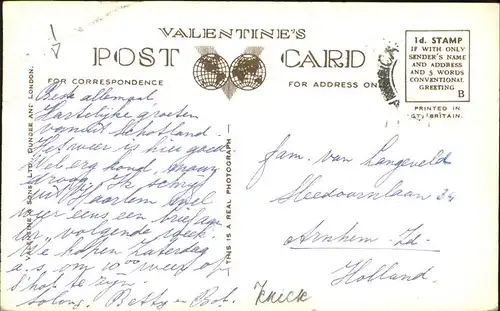 VALENTINE'S
POST CARD
FOR CORRESPONDENCE
FOR ADDRESS ON
1d. STAMP
IF WITH ONLY
SENDER'S NAME
AND ADDRESS
AND 5 WORDS
CONVENTIONAL
GREETING
B
PRINTED IN
GT. BRITAIN.
VALENTINE & SONS, LTD., DUNDEE AND LONDON.
THIS IS A REAL PHOTOGRAPH
Beste allemaal
Hartelijke groeten
vanuit Schotland.
Het weer is hier goed
Wel erg koud, maar
droog. Ik schrijf
uit Haarlem
nog eens een brief
volgende week.
We hopen Zaterdag
a.s. om 10.00 weer op
te zijn.
Betty en Bob.
fam. van Langeveld
Sleedoornlaan 34
Arnhem-Zd.
Holland.